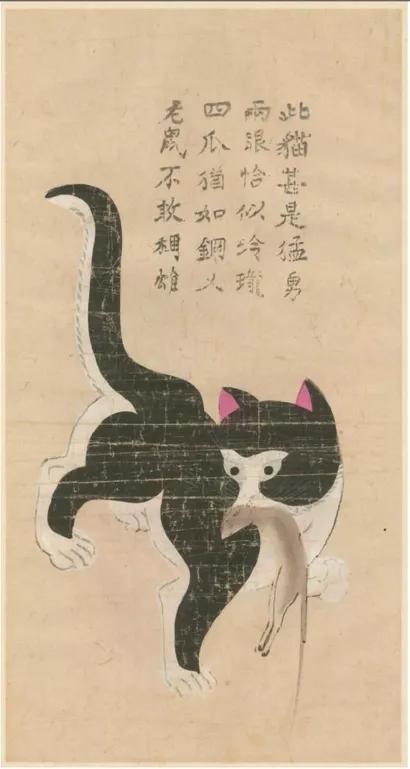 此貓甚是猛勇
兩眼恰似泠瓏
四爪猶如鋼叉
老鼠不敢相